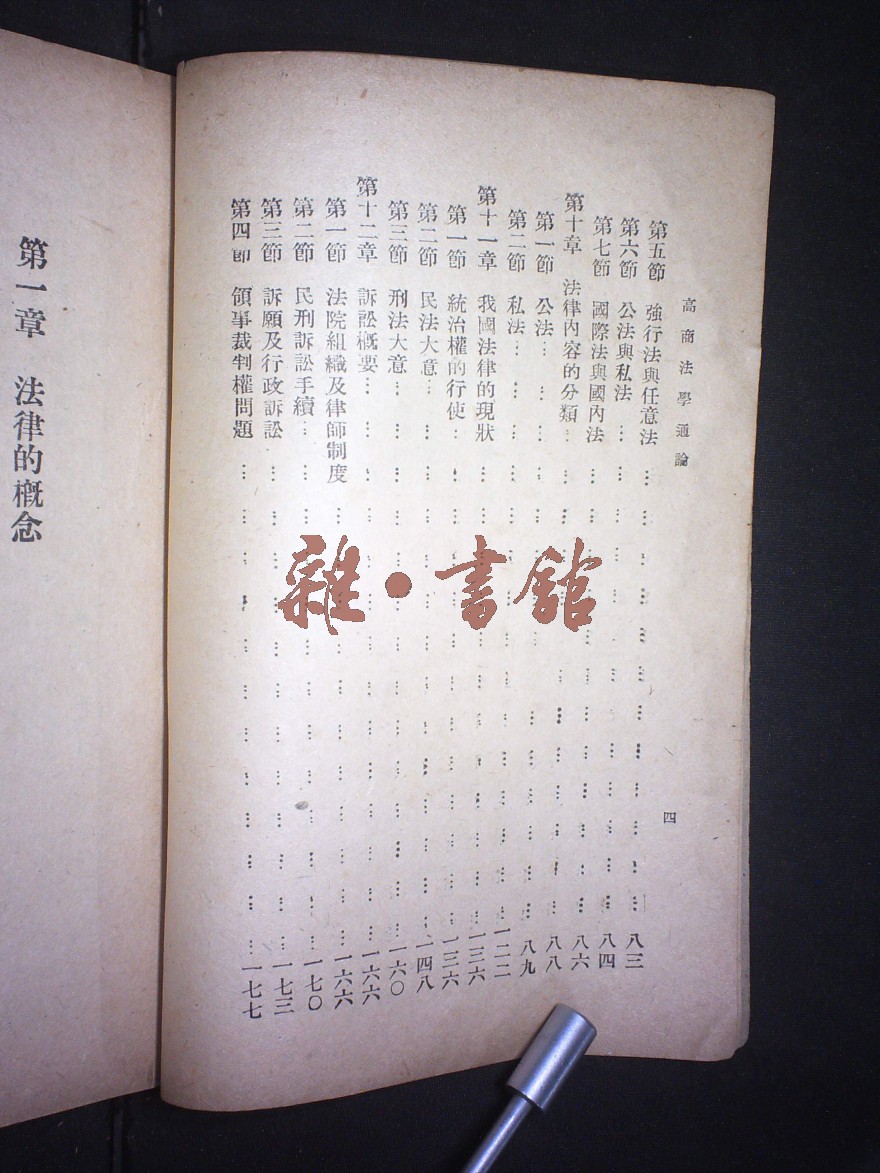 高商法學通論
四
第五節 強行法與任意法 … 八三
第六節 公法與私法 … 八四
第七節 國際法與國內法 … 八六
第十章 法律內容的分類 … 八八
第一節 公法 … 八九
第二節 私法 … 一二二
第十一章 我國法律的現狀 … 一三六
第一節 統治權的行使 … 一三六
第二節 民法大意 … 一四八
第三節 刑法大意 … 一六〇
第十二章 訴訟概要 … 一六六
第一節 法院組織及律師制度 … 一六六
第二節 民刑訴訟手續 … 一七〇
第三節 訴願及行政訴訟 … 一七三
第四節 領事裁判權問題 … 一七七
第一章 法律的概念
雜·書館